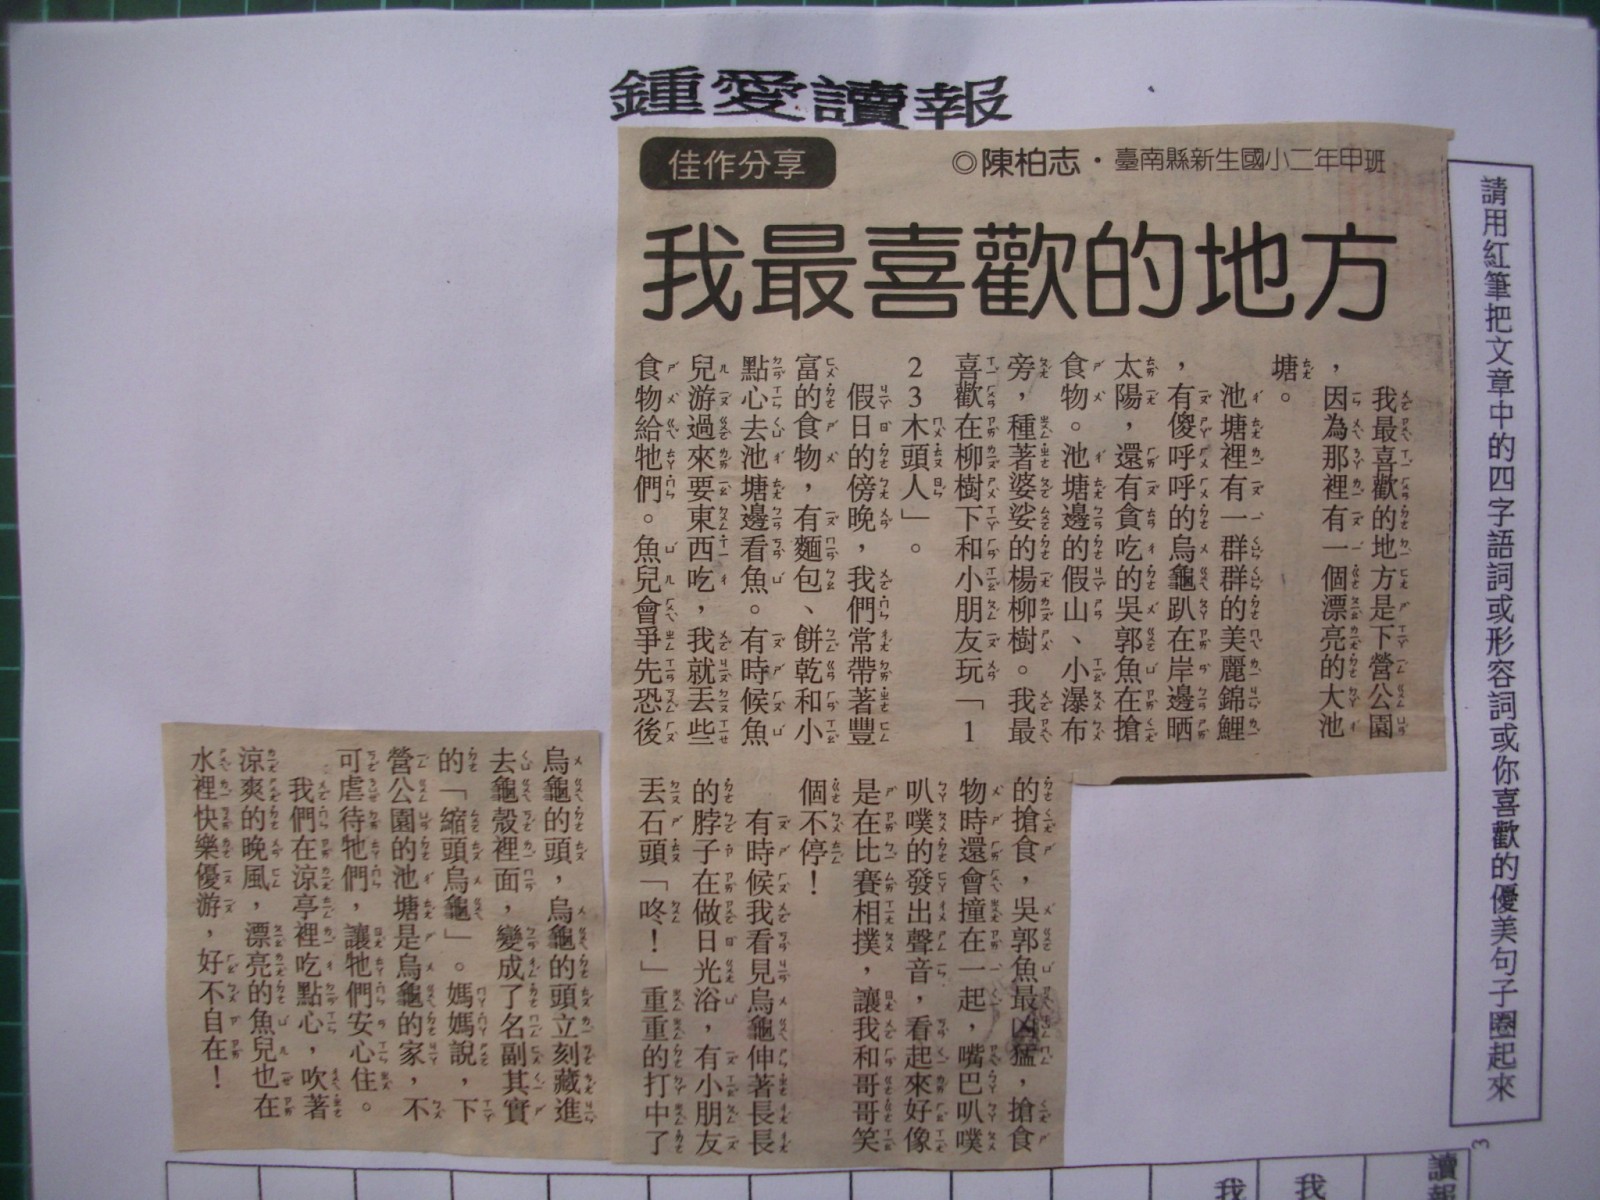 鍾愛讀報
佳作分享
◎陳柏志・臺南縣新生國小二年甲班
我最喜歡的地方
我最喜歡的地方是下營公園
，因為那裡有一個漂亮的大池
塘。
池塘裡有一群群的美麗錦鯉
，有傻呼呼的烏龜趴在岸邊晒
太陽，還有貪吃的吳郭魚在搶
食物。池塘邊的假山、小瀑布
旁，種著婆娑的楊柳樹。我最
喜歡在柳樹下和小朋友玩「1
23木頭人」。
假日的傍晚，我們常帶著豐
富的食物，有麵包、餅乾和小
點心去池塘邊看魚。有時候魚
兒游過來要東西吃，我就丟些
食物給牠們。魚兒會爭先恐後
的搶食，吳郭魚最凶猛，搶食
物時還會撞在一起，嘴巴叭噗
叭噗的發出聲音，看起來好像
是在比賽相撲，讓我和哥哥笑
個不停！
有時候我看見烏龜伸著長長
的脖子在做日光浴，有小朋友
丟石頭「咚！」重重的打中了
烏龜的頭，烏龜的頭立刻藏進
去龜殼裡面，變成了名副其實
的「縮頭烏龜」。媽媽說，下
營公園的池塘是烏龜的家，不
可虐待牠們，讓牠們安心住。
我們在涼亭裡吃點心，吹著
涼爽的晚風，漂亮的魚兒也在
水裡快樂優游，好不自在！
請用紅筆把文章中的四字語詞或形容詞或你喜歡的優美句子圈起來
3
讀報
我
我